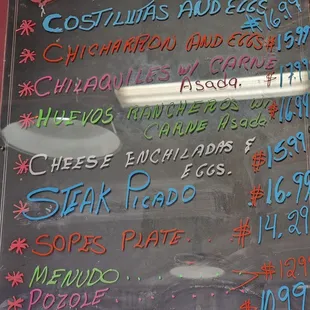 * COSTILLITAS AND EGGS $16.99
* CHICHARRON AND EGGS $15.99
* CHILAQUILES W/ CARNE $17.99
Asada.
* HUEVOS RANCHEROS W/ $16.99
CARNE Asada.
* CHEESE ENCHILADAS & $15.99
EGGS.
* STEAK PICADO $16.99
* SOPES PLATE... $14.29
* MENUDO $12
* POZOLE 10.99